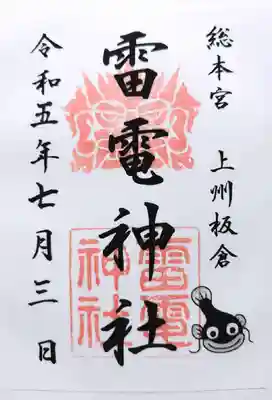 総本宮 上州板倉
雷電神社
雷電神社
令和五年七月三日